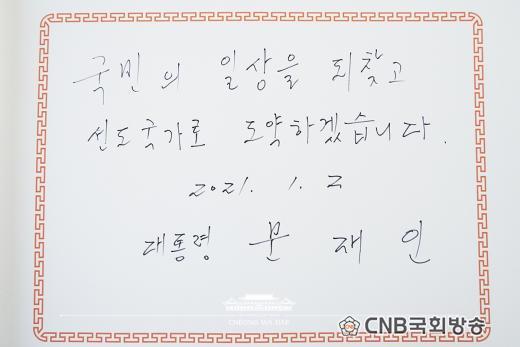 국민의 일상을 되찾고
선도국가로 도약하겠습니다.
2021. 1. 2
대통령 문 재 인
CHEONG WA DAE
CNB국회방송